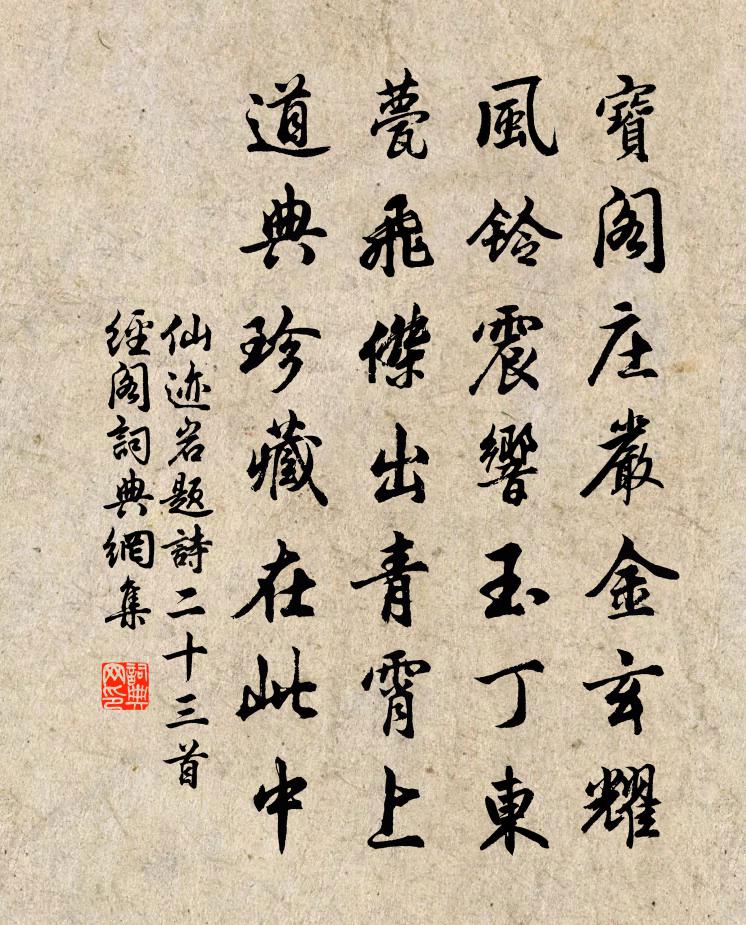 寶阁庄嚴金玄耀
風鈴震響玉丁東
甍飛傑出青霄上
道典珍藏在此中
仙迹岩题詩二十三首
經阁詞典網集
詞典网印